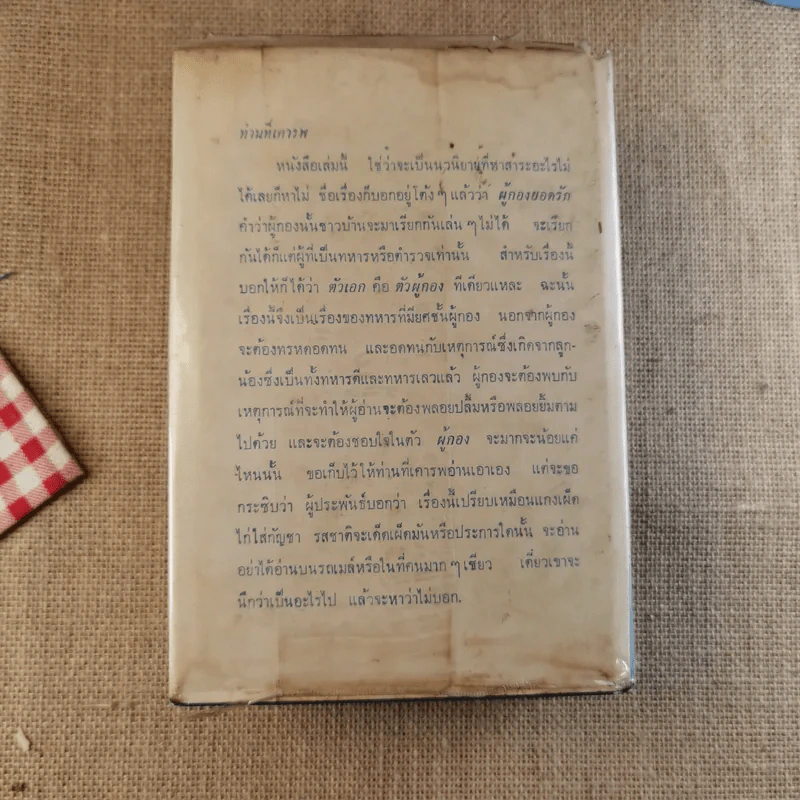 ท่านที่เคารพ
หนังสือเล่มนี้ ใช่ว่าจะเป็นนวนิยายที่หาสาระอะไรไม่
ได้เลยก็หาไม่ ชื่อเรื่องก็บอกอยู่โต้ง ๆ แล้วว่า ผู้กองยอดรัก
คำว่าผู้กองนั้นชาวบ้านจะมาเรียกกันเล่น ๆ ไม่ได้ จะเรียก
กันได้ก็แต่ผู้ที่เป็นทหารหรือตำรวจเท่านั้น สำหรับเรื่องนี้
บอกให้ก็ได้ว่า ตัวเอก คือ ตัวผู้กอง ทีเดียวแหละ ฉะนั้น
เรื่องนี้จึงเป็นเรื่องของทหารที่มียศชั้นผู้กอง นอกจากผู้กอง
จะต้องทรหดอดทน และอดทนกับเหตุการณ์ซึ่งเกิดจากลูก-
น้องซึ่งเป็นทั้งทหารดีและทหารเลวแล้ว ผู้กองจะต้องพบกับ
เหตุการณ์ที่จะทำให้ผู้อ่านจะต้องพลอยปลื้มหรือพลอยยิ้มตาม
ไปด้วย และจะต้องชอบใจในตัว ผู้กอง จะมากจะน้อยแค่
ไหนนั้น ขอเก็บไว้ให้ท่านที่เคารพอ่านเอาเอง แต่จะขอ
กระซิบว่า ผู้ประพันธ์บอกว่า เรื่องนี้เปรียบเหมือนแกงเผ็ด
ไก่ใส่กัญชา รสชาติจะเด็ดเผ็ดมันหรือประการใดนั้น จะอ่าน
อย่าได้อ่านบนรถเมล์หรือในที่คนมาก ๆ เชียว เดี๋ยวเขาจะ
นึกว่าเป็นอะไรไป แล้วจะหาว่าไม่บอก.